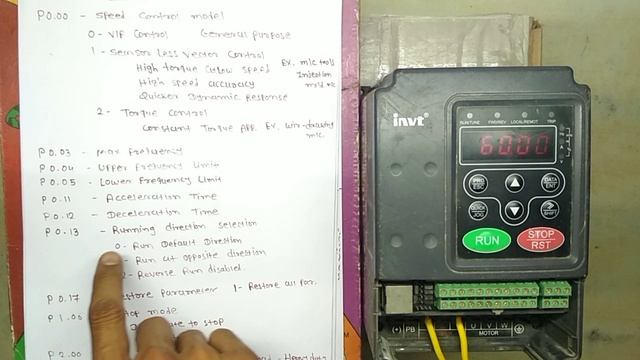 P0.00 - Speed Control model
0 - V/F Control General purpose
1 - Sensor Less Vector Control
High torque @low speed Ex. m/c tools
High speed accuracy Injection
Quicker Dynamic Response
2 - Torque Control
Constant Torque App. Ex. wire-drawing
m/c.
P0.03 - Max Frequency
P0.04 - Upper Frequency Limit
P0.05 - Lower Frequency Limit
P0.11 - Acceleration Time
P0.12 - Deceleration Time
P0.13 - Running direction selection
0 - Run Default Direction
- Run at opposite direction
- Reverse Run disabled.
P0.17 Restore Parameter 1- Restore all Par.
P1.00 mode
to stop
P2.00
invt
RUN/TUNE FWD/REV LOCAL/REMOT TRIP
6000
PRG
ESC
DATA
ENT
QUICK
JOG
SHIFT
RUN
STOP
RST
(+) PB
U V W
MOTOR